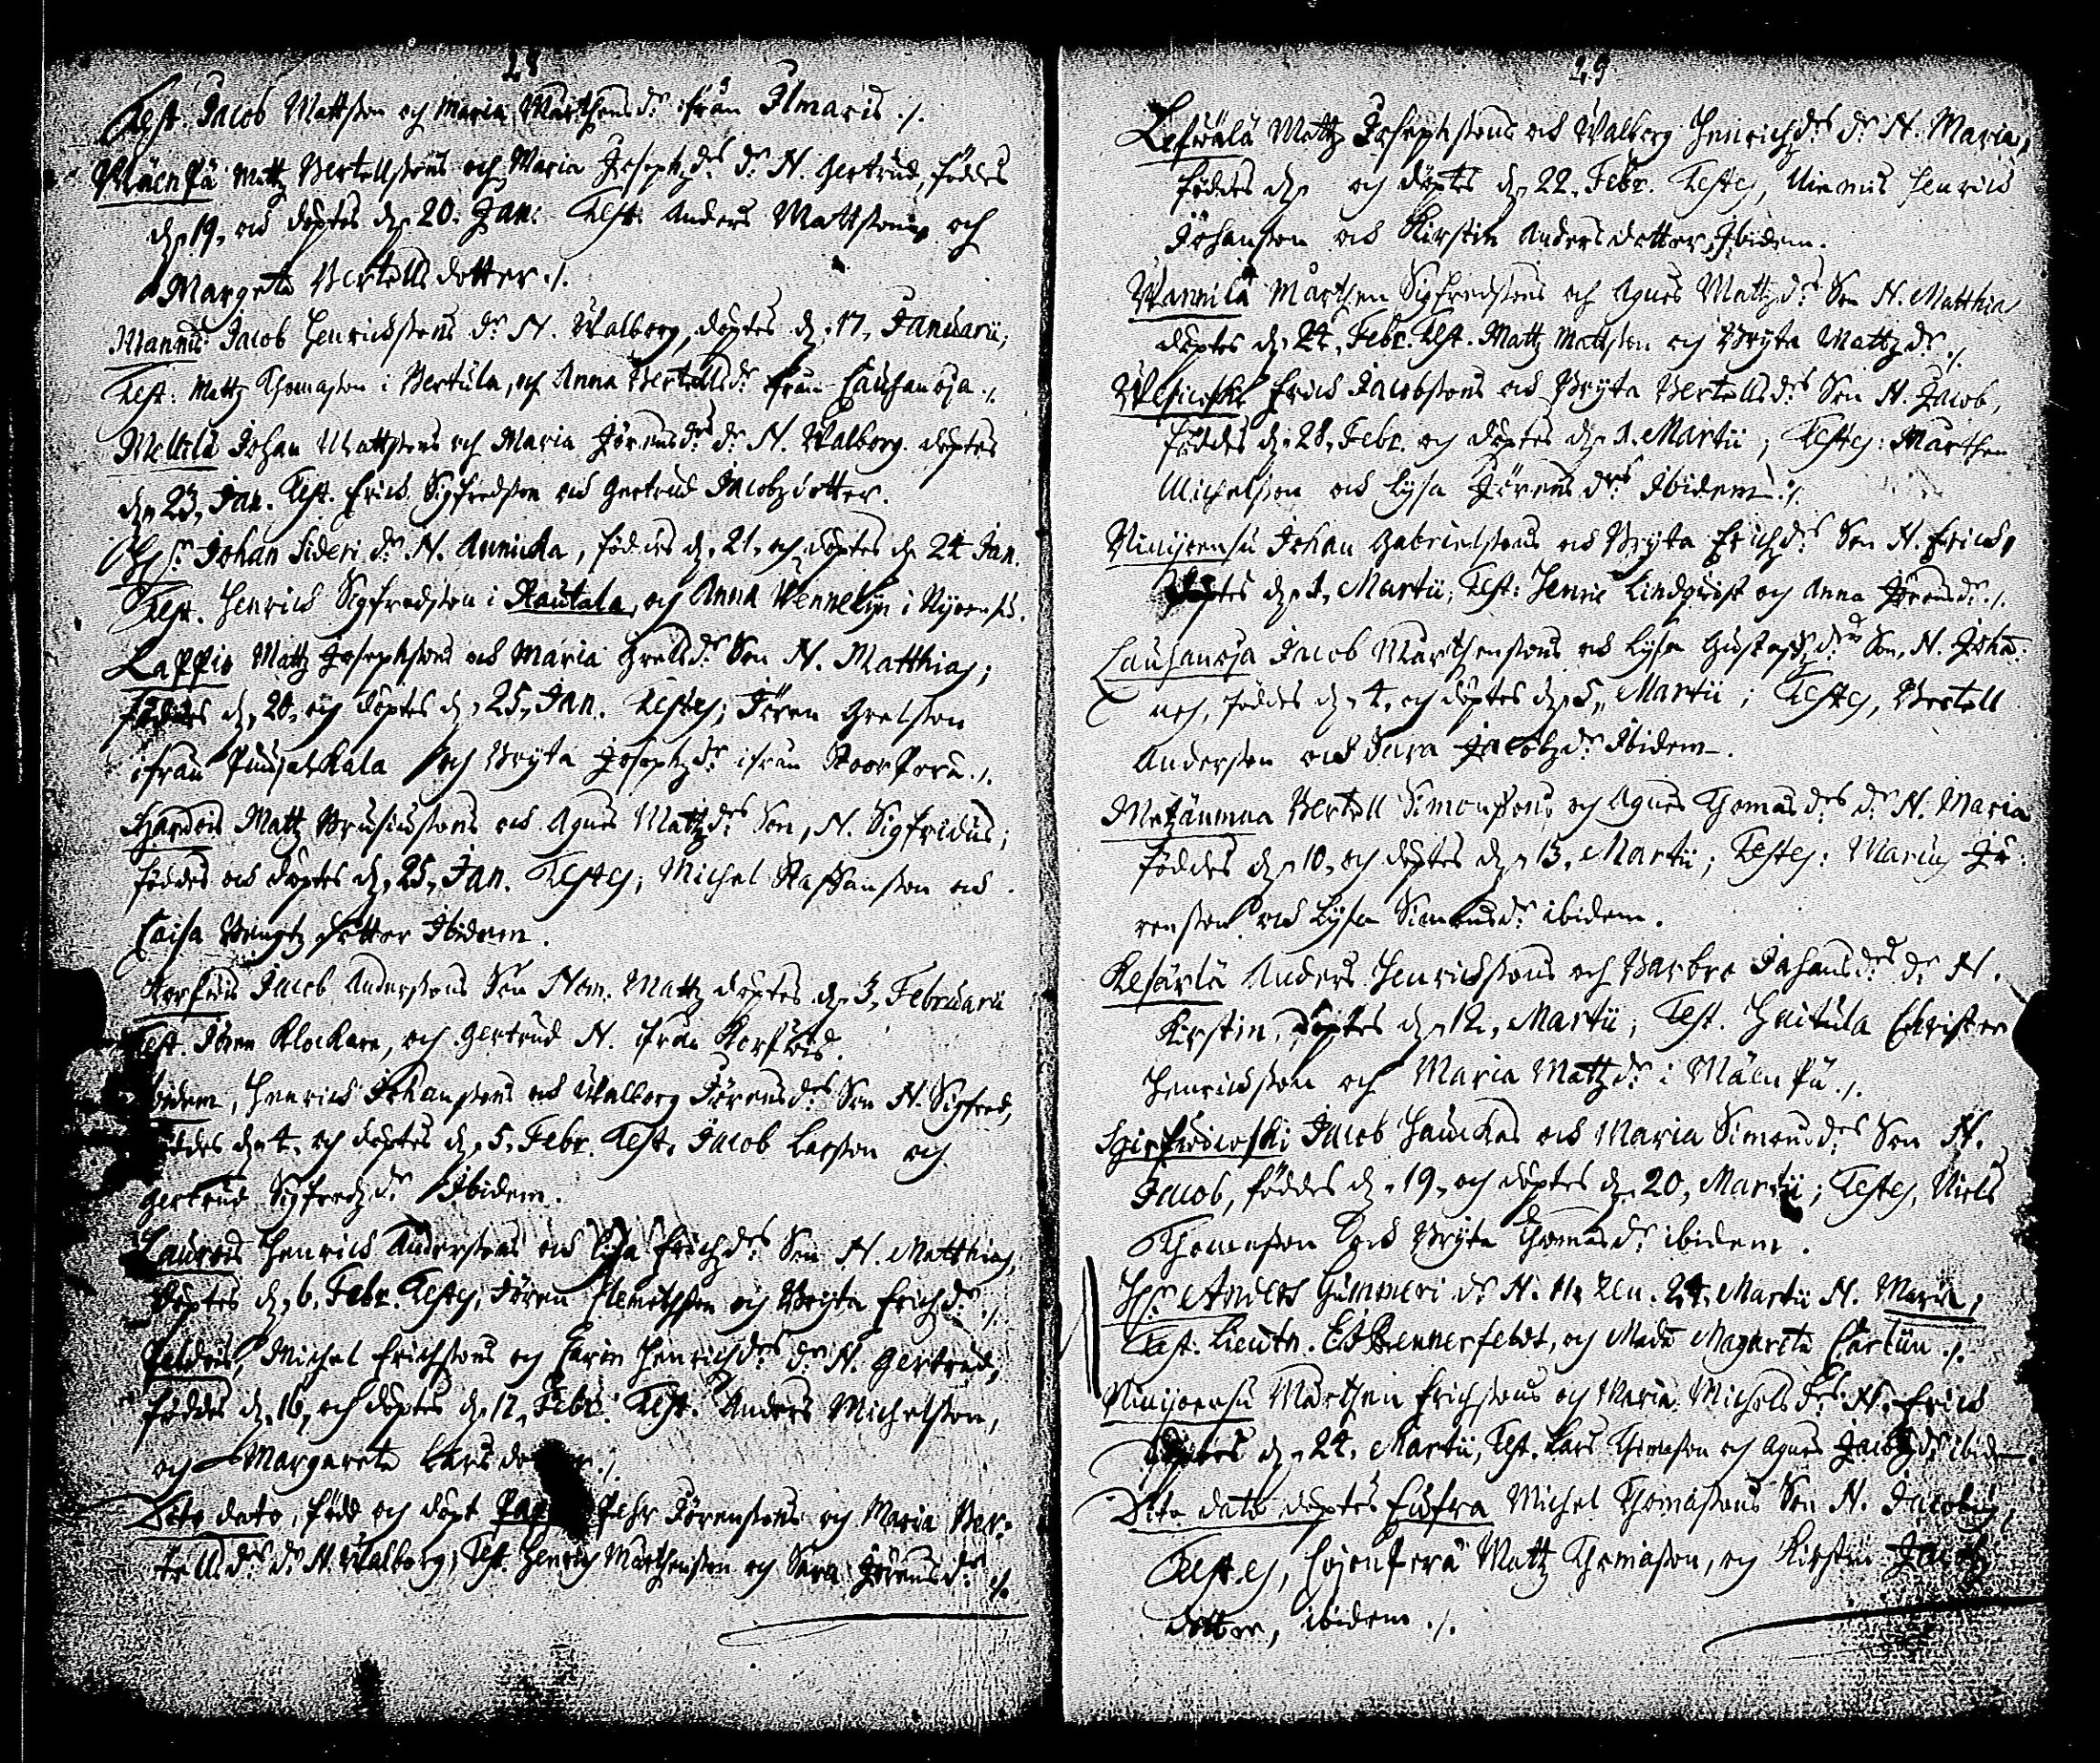 28
Test. Jacob Mattsson och Maria Mårthensdr ifrån Ilmaris ./.
Mäenpä Mattz Bertellssons och Maria Josephzdrs dr N. Gertrud, föddes
d. 19, och döptes d. 20. Jan: Test. Anders Mattsson och
Margeta Bertellsdotter ./.
Mannis Jacob Henrichssons dr N. Walborg, döptes d. 17, Januarii,
Test: Mattz Thomasson i Bertula, och Anna Bertellsdr ifrån Lauhanoja ./.
Mellilä Johan Mattssons och Maria Jörensdrs dr N. Walborg. döptes
d. 23, Jan. Test. Erich Sigfredsson och Gertrud Jacobzdotter.
Johan Sideri dr N. Annicka, föddes d. 21, och döptes d. 24 Jan.
Test. Henrich Sigfredsson i Rautala, och Anna Wennelijn i Nijoensu.
Lappis Mattz Josephssons och Maria Grelsdrs Son N. Matthias;
föddes d. 20, och döptes d. 25, Jan. Testes; Jören Grelsson
ifrån och Bryta Josephzdr ifrån ./.
Mattz och Agnes Mattzdrs Son, N. Sigfridus;
föddes och döptes d. 25, Jan. Testes; Michel Staffansson och
Caisa Bengtz dotter Ibidem.
Korfwis Jacob Anderssons Son Nom. Mattz döptes d. 3, Februarii
Test. Jören Klockare, och Gertrud N. ifrån Korfwis.
Ibidem, Henrich Johanssons och Walborg Jörensdrs Son N. Sigfred,
föddes d. 4, och döptes d. 5, Febr. Test. Jacob Larsson och
Gertrud Sigfredzdr Ibidem.
Laurois Henrich Anderssons och Lisa Erichzdrs Son N. Matthias,
Döptes d. 6, Febr. Testes; Jören och Bryta Erichzdr ./.
Michel Erichssons och Carin Henrichzdrs dr N. Gertrud,
föddes d. 16, och döptes d. 17, Febr. Test. Anders Michelsson,
och Margareta Lars ./.
Dito dato, född och döpt Pehr Jörenssons och Maria Ber-
tellsdrs dr N. Walborg; Test. Henrich Mårthensson och Sara Jörensdr ./.
29
Mattz Josephssons och Walborg Henrichzdrs dr N. Maria,
föddes d. och döptes d. 22. Febr. Testes, Henrich
Johansson och Kirstin Andersdotter, Ibidem.
Wannila Mårthen Sigfredssons och Agnes Mattzdrs Son N. Matthias
döptes d. 24, Febr. Test. Mattz Mattsson och Bryta Mattzdr ./.
Erich Jacobssons och Bryta Bertellsdrs Son N. Jacob,
föddes d. 28, Febr. och döptes d. 1. Martii; Testes: Mårthen
Michelsson och Lysa Jörensdr Ibidem ./.
Nijoensu Johan Gabrielssons och Bryta Erichzdrs Son N. Erich,
döptes d. 1, Martii; Test: Henric Lindqwist och Anna Jörensdr ./.
Lauhanoja Jacob Mårthenssons och Lysa Gustafzdrs Son, N. Joha-
nes, föddes d. 4, och döptes d. 5, Martii; Testes, Bertell
Andersson och Sara Jacobzdr Ibidem.
Metzänmaa Bertell Simonssons och Agnes Thomasdrs dr N. Maria
föddes d. 10, och döptes d. 13, Martii; Testes: Marcus Jö-
rensson och Lysa Simonsdr ibidem.
Kesärlä Anders Henrichssons och Barbro Johansdrs dr N.
Kirstin, döptes d. 12, Martii; Test. Christer
Henrichsson och Maria Mattzdr i Mäenpä ./.
Jacob och Maria Simonsdrs Son N.
Jacob, föddes d. 19, och döptes d. 20, Martii; Testes, Niels
Thomasson och Bryta Thomasdr ibidem.
Anders Gummeri dr N. 24, Martii N. Maria,
Test. Lieutn. Bennerfeldt, och Mad. Magareta ./.
Nijoensu Mårthen Erichssons och Maria Michelsdrs N. Erich
döptes d. 24, Martii, Test. Lars Thomasson och Agnes Jacobzdr ibidem
Dito dato döptes Eufra Michel Thomassons Son N. Jacobus,
Testes, Mattz Thomasson, och Kirstin Jacobz
dotter, ibidem ./.